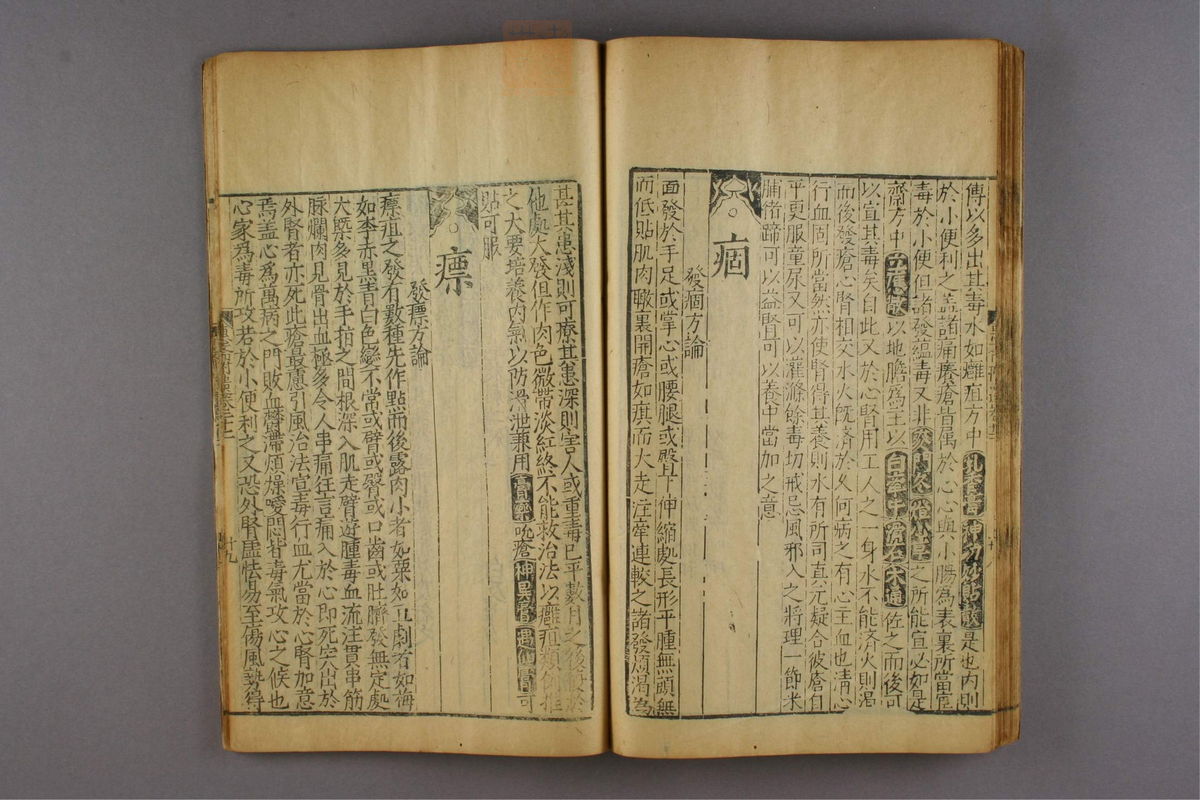 傅以多出其毒水如癰疽方中乳香膏神功妙貼散是也内則
於小便利之蓋諸痛癢瘡皆属於心心與小膓為表裏所當宣
毒於小便但諸發蘊毒又非麥門冬飛仙亭之所能宣必如是
齋方中散以地膽為主以白牽牛滑石木通佐之而後可
以宣其毒矣自此又於心腎用工人之一身水不能済火則渴
而後發瘡心腎相交水火既済於久何病之有心主血也清心
行血固所當然亦使腎得其養則水有所司真元凝合彼瘡自
平更服童尿又可以灌滌餘毒切戒忌風邪入之將理一節米
脯猪蹄可以益腎可以養中當加之意
痼
發痼方論
面發於手足或掌心或腰腿或臀下伸縮處長形平腫無頭無
而低貼肌肉皦裏開瘡如旗而大走注牽連較之諸發煩渴為
甚其患淺則可療其患深則害人或重毒已平數月之後
他處大發但作肉色微帶淡紅終不能救治法以癰疽類例推
之大要培養内氣以防滑泄兼用膏藥吮瘡神異膏遇仙膏可
貼可服
瘭
發瘭方論
瘭疽之發有數種先作點而後露肉小者如粟如豆劇者如梅
如李赤黒青白色變不常或臂或臀或口齒或肚臍發無定處
大槩多見於手指之間根深入肌走臂遊腫毒血流注貫串筋
脉爛肉見骨出血極多令人串痛狂言痛入於心即死突出於
外腎者亦死此瘡最慮引風治法宣毒行血尤當於心腎加意
焉盖心為萬病之門敗血鬱滯煩燥嘔悶皆毒氣攻心之候也
心家為毒所攻者於小便利之又恐外腎虚怯易至傷風勢得
十九